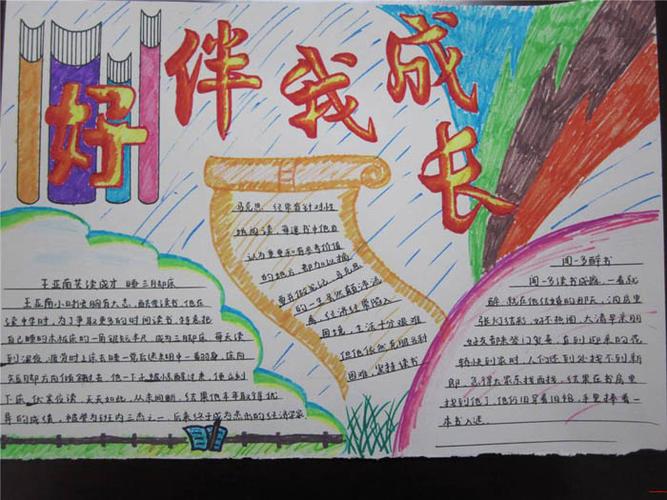 好伴我成长
王亚南苦读成才 睡三脚床
王亚南小时候胸有大志，酷爱读书，他在
读中学时，为了争取更多的时间读书，特意把
自己睡的木板床的一角锯短半尺，成为三脚床。每天读
到深夜，疲劳时上床去睡一觉后迷糊中一翻身，床向
短脚方向倾斜过去，他一下子被惊醒过来，便立刻
下床，伏案夜读。天天如此，从未间断。结果他年年取得优
异的成绩，被誉为班内三杰之一。后来终于成为杰出的经济学家
马克思 经常有针对性
地阅读，每遇书中他自
认为重要和有参考价值
的地方，都加以摘
马克思
的一生
经济
困境，生活十分艰难
但他依然克服各种
困难，坚持读书
闻一多醉书
闻一多读书成瘾，一看就
醉，就在他结婚的那天，洞房里
张灯结彩，好不热闹。大清早亲朋
好友都来登门贺喜，直到迎亲的花
轿快到家时，人们还到处找不到新
郎。急得大家东找西找，结果在书房里
找到他了。他仍旧穿着旧袍，手里捧着一
本书入迷。